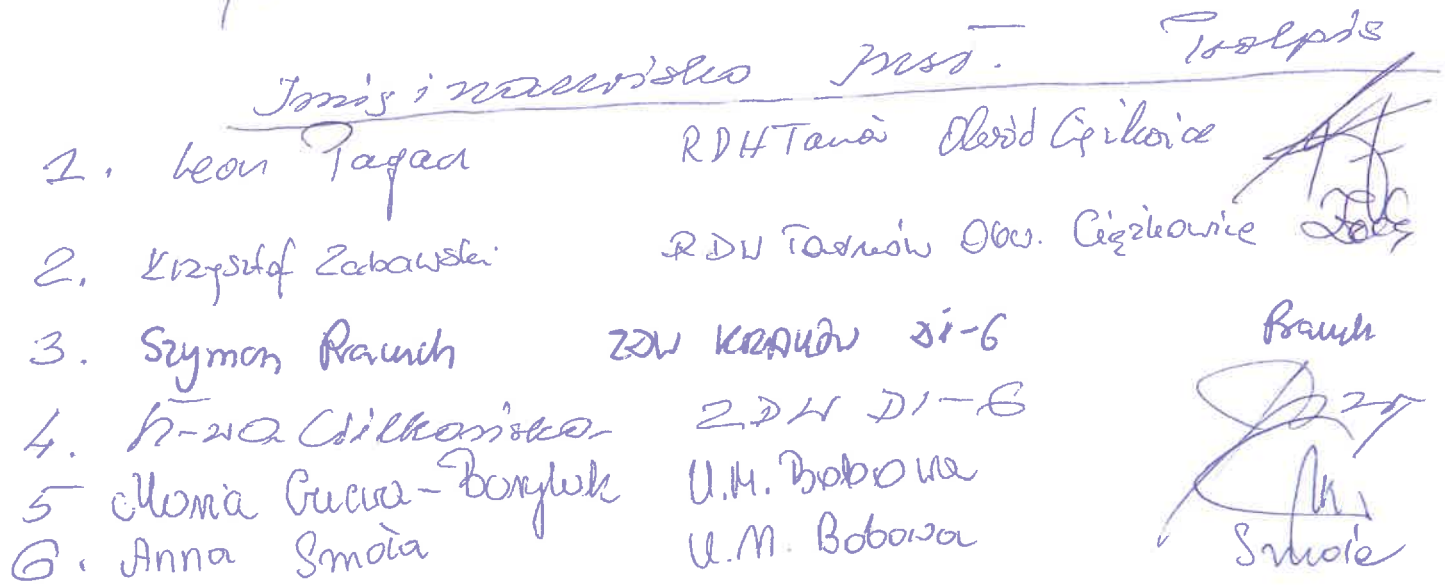 Imię i nazwisko Inst. Podpis
1. Leon Pagacz RDW Tarnów Obwód Ciężkowice
2. Krzysztof Zabawski RDW Tarnów Obw. Ciężkowice
3. Szymon Rausch ZDW KRAKÓW DI-6 Rausch
4. ZDW DI-6
5 Maria Gucwa- U.M. Bobowa
6. Anna Smoła U.M. Bobowa Smoła